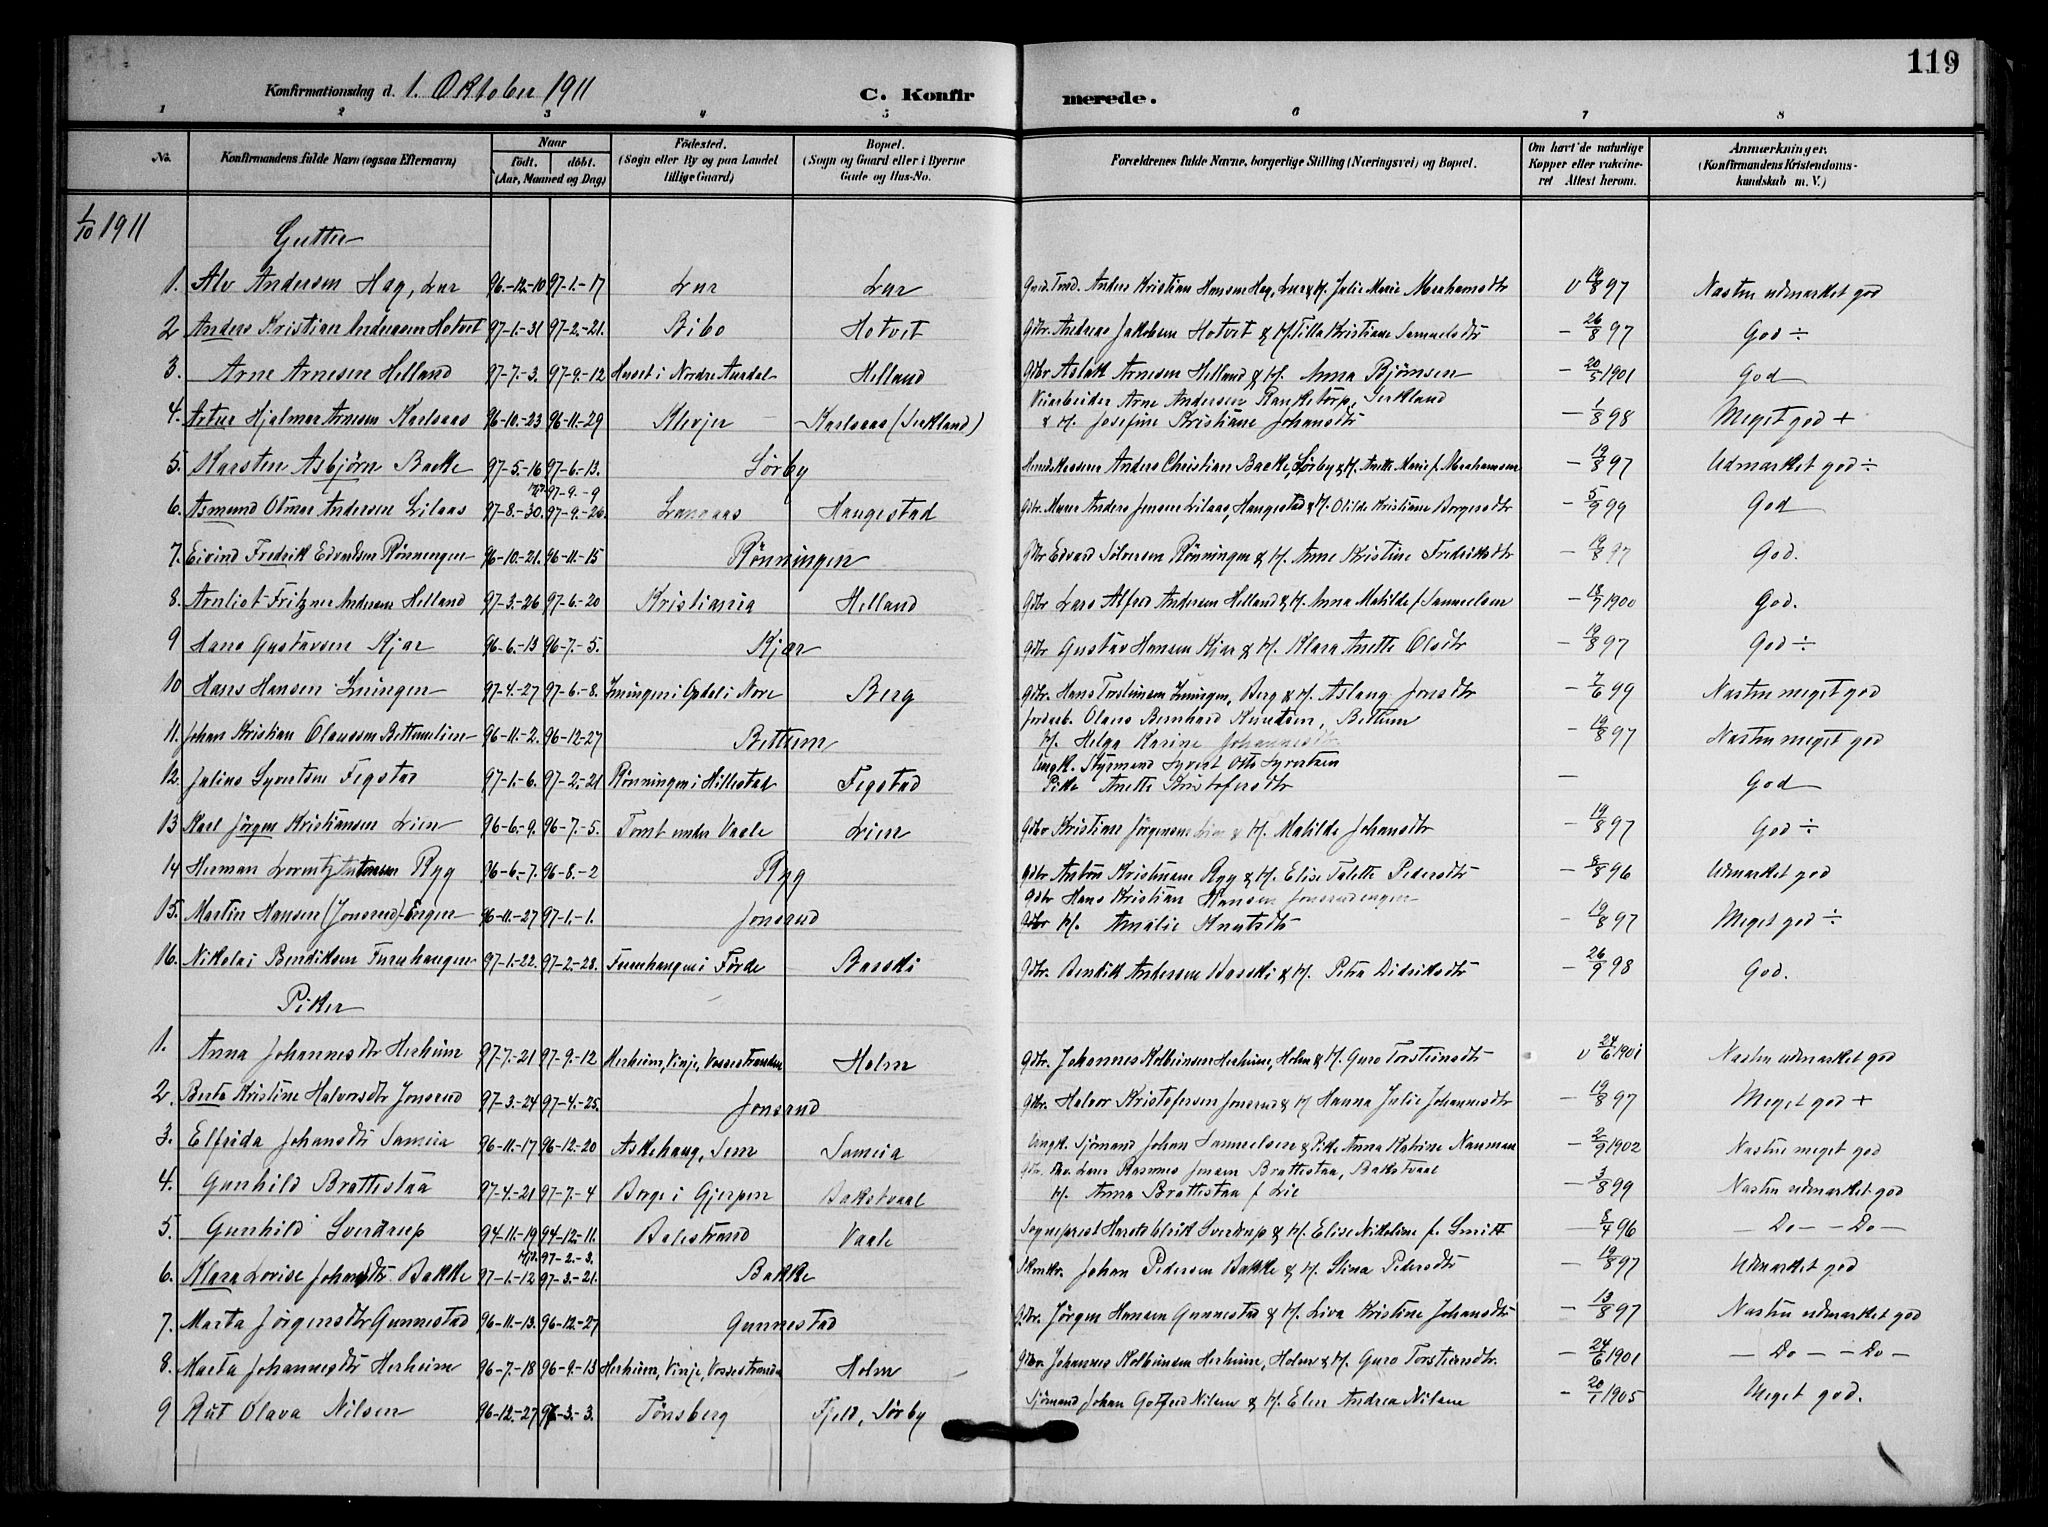 119
Konfirmationsdag d. 1. Oktober 1911
C. Konfirmerede.
1 2 3 4 5 6 7 8
No. Konfirmandens fulde Navn (ogsaa Efternavn) Naar født. døbt. (Aar, Maaned og Dag) Fødested. (Sogn eller By og paa Landet tillige Gaard) Bopæl. (Sogn og Gaard eller i Byerne Gade og Hus-No. Forældrenes fulde Navne, borgerlige Stilling (Næringsvei) og Bopæl. Om havt de naturlige Kopper eller vakcineret Attest herom. Anmærkninger. (Konfirmandens Kristendomskundskab m. V.)
1/10 1911
Gutter
1. Alv Andersen Hag, Lur 96-12-10 97-1-17 Lur Lur Anders Kristian Hansen Hag, Lur & H. Julie Marie Abrahamsdtr v 19/8 97 Næsten udmærket god
2 Anders Kristian Andreasen Hotvet 97-1-31 97-2-21. Bibo Hotvet Gbr. Andreas Jakobsen Hotvet & H. Tilla Kristiane Samuelsdtr - 26/8 97 God ÷
3. Arne Arnesen Helland 97-7-3. 97-9-12 i Nordre Aurdal Helland Gbr Aslak Arnesen Helland & H. Anna Bjørnsen - 20/5 1901 God
4. Artur Hjalmar Arnesen Karlsaas 96-10-23 96-11-29 Klevjer Karlsaas (Serkland) Veiarbeider Arne Andersen, Serkland
& H. Josefine Kristiane Johansdtr - 1/8 98 Meget god +
5. Karsten Asbjørn Bakke 97-5-16 97-6-13. Sørby Anders Christian Bakke, Sørby & H. Anette Marie f. Abrahamsen - 19/8 97 Udmærket god ÷
6. Asmund Otmar Andersen Lilaas 97-8-30. 97-9-9 97-9-26. Haugestad Gbr. Anders Jensen Lilaas, Haugestad & H. Olilde Kristiane Borgersdtr - 5/9 99 God
7. Eivind Fredrik Edvardsen Rønningen 96-10-21. 96-11-15 Rønningen Gbr Edvard Sølversen Rønningen & H. Anne Kristine Fredriksdtr - 19/8 97 God.
8. Arnliot Fritzner Andersen Helland 97-3-26 97-6-20 Kristiania Helland Gbr Lars Alfred Andersen Helland & H. Anna Matilde f. Samuelsen - 18/7 1900 God.
9 Hans Gustavsen Kjær 96-6-13 96-7-5. Kjær Gbr Gustav Hansen Kjær & H. Klara Anette Olsdtr - 19/8 97 God ÷
10 Hans Hansen 97-4-27 97-6-8. i Opdal i Nore Berg Gbr. Hans Torsteinsen, Berg & H. Aslaug Jonsdtr - 7/6 99 Næsten meget god
11. Johan Kristian Olaussen Bettumlien 96-11-2. 96-12-27 Bettum Jordarb. Olaus Bernhard Knutsen, Bettum
H. Helga Karine Johannesdtr - 19/8 97 Næsten meget god
12. Julius Syvertsen Fegstad 97-1-6. 97-2-21 Rønningen i Hillestad Fegstad Ungk. Styrmand Syvert Otto Syvertsen
Pike Anette Kristofersdtr — God
13 Karl Jørgen Kristiansen Lien 96-6-9. 96-7-5. Tomt under Vaale Lien Gbr Kristian Jørgensen Lien & H. Matilde Johansdtr - 19/8 97 God ÷
14 Herman Lorentz Antonsen Ryg 96-6-7. 96-8-2 Ryg Gbr Anton Kristiansen Ryg & H. Elise Talette Pedersdtr - 8/8 96 Udmærket god
15. Martin Hansen (Jonsrud)-Engen 96-11-27 97-1-1. Jonsrud Gbr Hans Kristian Hansen Jonsrudengen
H. Amalie Knutsdtr - 19/8 97 Meget god ÷
16. Nikolai Bendiksen Furuhaugen 97-1-22. 97-2-28. Furuhaugen i Førde Basski Gbr. Bendik Andersen Basski & H. Petra Didriksdtr - 26/9 98 God.
Piker
1. Anna Johannesdtr Herheim 97-7-21 97-9-12 Herheim, Vinje, Vossestranden Holm Gbr. Johannes Kolbeinsen Herheim, Holm & H. Guro Torsteinsdtr v 24/6 1901 Næsten udmærket god
2. Berta Kristine Halvorsdtr Jonsrud 97-3-24 97-4-25. Jonsrud Gbr. Halvor Kristofersen Jonsrud & H Hanna Julie Johannesdtr - 19/8 97 Meget god +
3. Elfrida Johansdtr Sameia 96-11-17 96-12-20 Askehaug, Sem Sameia Ungk. Sjømand Johan Samuelsen & Pike Anna Katrine Nauman - 2/9 1902 Næsten meget god
4. Gunhild Brattestaa 97-4-21 97-7-4 Borge i Gjerpen Bakstvaal Lærer Rasmus Jensen Brattestaa, Bakstvaal
H. Anna Brattestaa f. Lie - 3/8 99 Næsten udmærket god
5. Gunhild Sverdrup 94-11-19 94-12-11. Balestrand Vaale Sogneprest Harald Ulrik Sverdrup & H. Elise Nikoline f. Smitt - 8/4 96 — Do — — Do —
6. Klara Lovise Johansdtr Bakke 97-1-12 97-2-3. 97-3-21. Bakke Johan Pedersen Bakke & H. Stina Pedersdtr - 19/8 97 Udmærket god
7. Marta Jørgensdtr Gunnestad 96-11-13. 96-12-27 Gunnestad Gbr. Jørgen Hansen Gunnestad & H. Liva Kristine Johansdtr - 13/8 97 Næsten udmærket god
8. Marta Johannesdtr Herheim 96-7-18 96-9-13 Herheim, Vinje, Vossestranden Holm Gbr. Johannes Kolbeinsen Herheim, Holm & H. Guro Torsteinsdtr. - 24/6 1901 — Do — — Do —
9 Rut Olava Nilsen 96-12-27 97-3-3. Tønsberg Fjeld, Sørby Sjømand Johan Gotfred Nilsen & H. Elen Andrea Nilsen - 20/1 1905 Meget god.